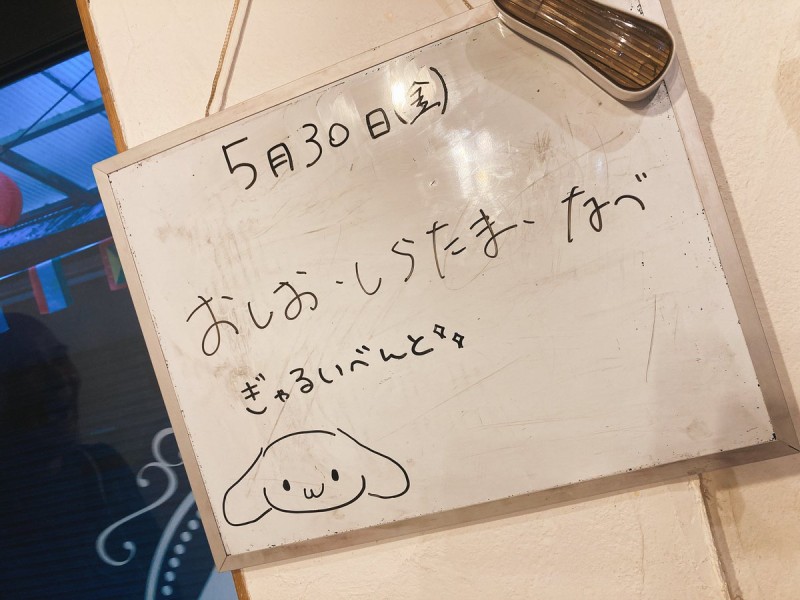 5月30日(金)
おしお・しらたま、なべ
ぎゃるいべんと